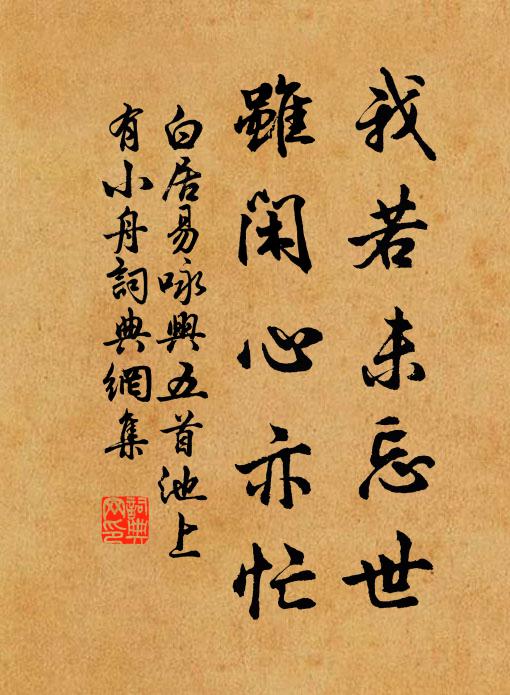 我若未忘世
雖閑心亦忙
白居易咏興五首池上
有小舟詞典網集
詞典網印